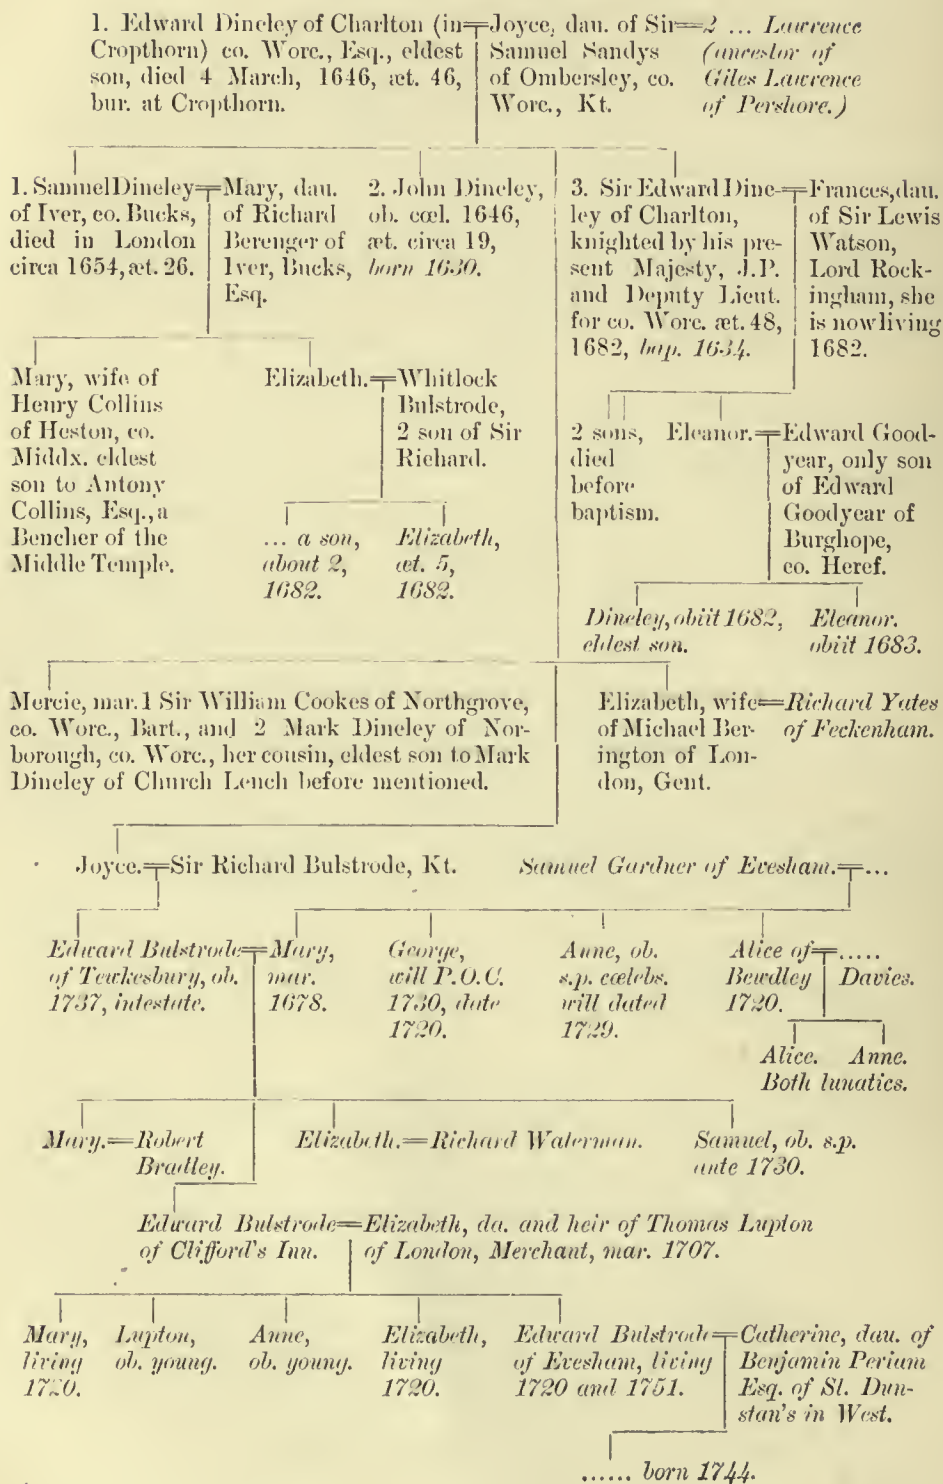 1. Edward Dineley of Charlton (in
Cropthorn) co. Worc., Esq., eldest
son, died 4 March, 1646, æt. 46,
bur. at Cropthorn.
Joyce, dau. of Sir
Samuel Sandys
of Ombersley, co.
Worc., Kt.
2 ... Lawrence
(ancestor of
Giles Lawrence
of Pershore.)
1. Samuel Dineley
of Iver, co. Bucks,
died in London
circa 1654, æt. 26.
Mary, dau.
of Richard
Berenger of
Iver, Bucks,
Esq.
2. John Dineley,
ob. cœl. 1646,
æt. circa 19,
born 1630.
3. Sir Edward Dine-
ley of Charlton,
knighted by his pre-
sent Majesty, J.P.
and Deputy Lieut.
for co. Worc. æt. 48,
1682, bap. 1634.
Frances, dau.
of Sir Lewis
Watson,
Lord Rock-
ingham, she
is now living
1682.
Mary, wife of
Henry Collins
of Heston, co.
Middx. eldest
son to Antony
Collins, Esq., a
Bencher of the
Middle Temple.
Elizabeth.
Whitlock
Bulstrode,
2 son of Sir
Richard.
2 sons,
died
before
baptism.
Eleanor.
Edward Good-
year, only son
of Edward
Goodyear of
Burghope,
co. Heref.
... a son,
about 2,
1682.
Elizabeth,
æt. 5,
1682.
Dineley, obiit 1682,
eldest son.
Eleanor.
obiit 1683.
Mercie, mar. 1 Sir William Cookes of Northgrove,
co. Worc., Bart., and 2 Mark Dineley of Nor-
borough, co. Worc., her cousin, eldest son to Mark
Dineley of Church Lench before mentioned.
Elizabeth, wife
of Michael Ber-
ington of Lon-
don, Gent.
Richard Yates
of Feckenham.
Joyce.
Sir Richard Bulstrode, Kt.
Samuel Gardner of Evesham.
...
Edward Bulstrode
of Tewkesbury, ob.
1737, intestate.
Mary,
mar.
1678.
George,
will P.O.C.
1730, date
1720.
Anne, ob.
s.p. cælebs.
will dated
1729.
Alice of
Bewdley
1720.
.....
Davies.
Alice. Anne.
Both lunatics.
Mary.
Robert
Bradley.
Elizabeth.
Richard Waterman.
Samuel, ob. s.p.
ante 1730.
Edward Bulstrode
of Clifford's Inn.
Elizabeth, da. and heir of Thomas Lupton
of London, Merchant, mar. 1707.
Mary,
living
1720.
Lupton,
ob. young.
Anne,
ob. young.
Elizabeth,
living
1720.
Edward Bulstrode
of Evesham, living
1720 and 1751.
Catherine, dau. of
Benjamin Periam
Esq. of St. Dun-
stan's in West.
...... born 1744.